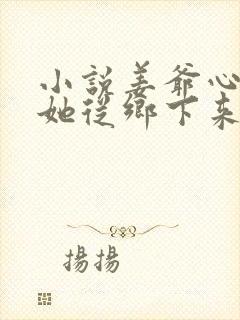 小說姜爺心
她從鄉下來
揚揚